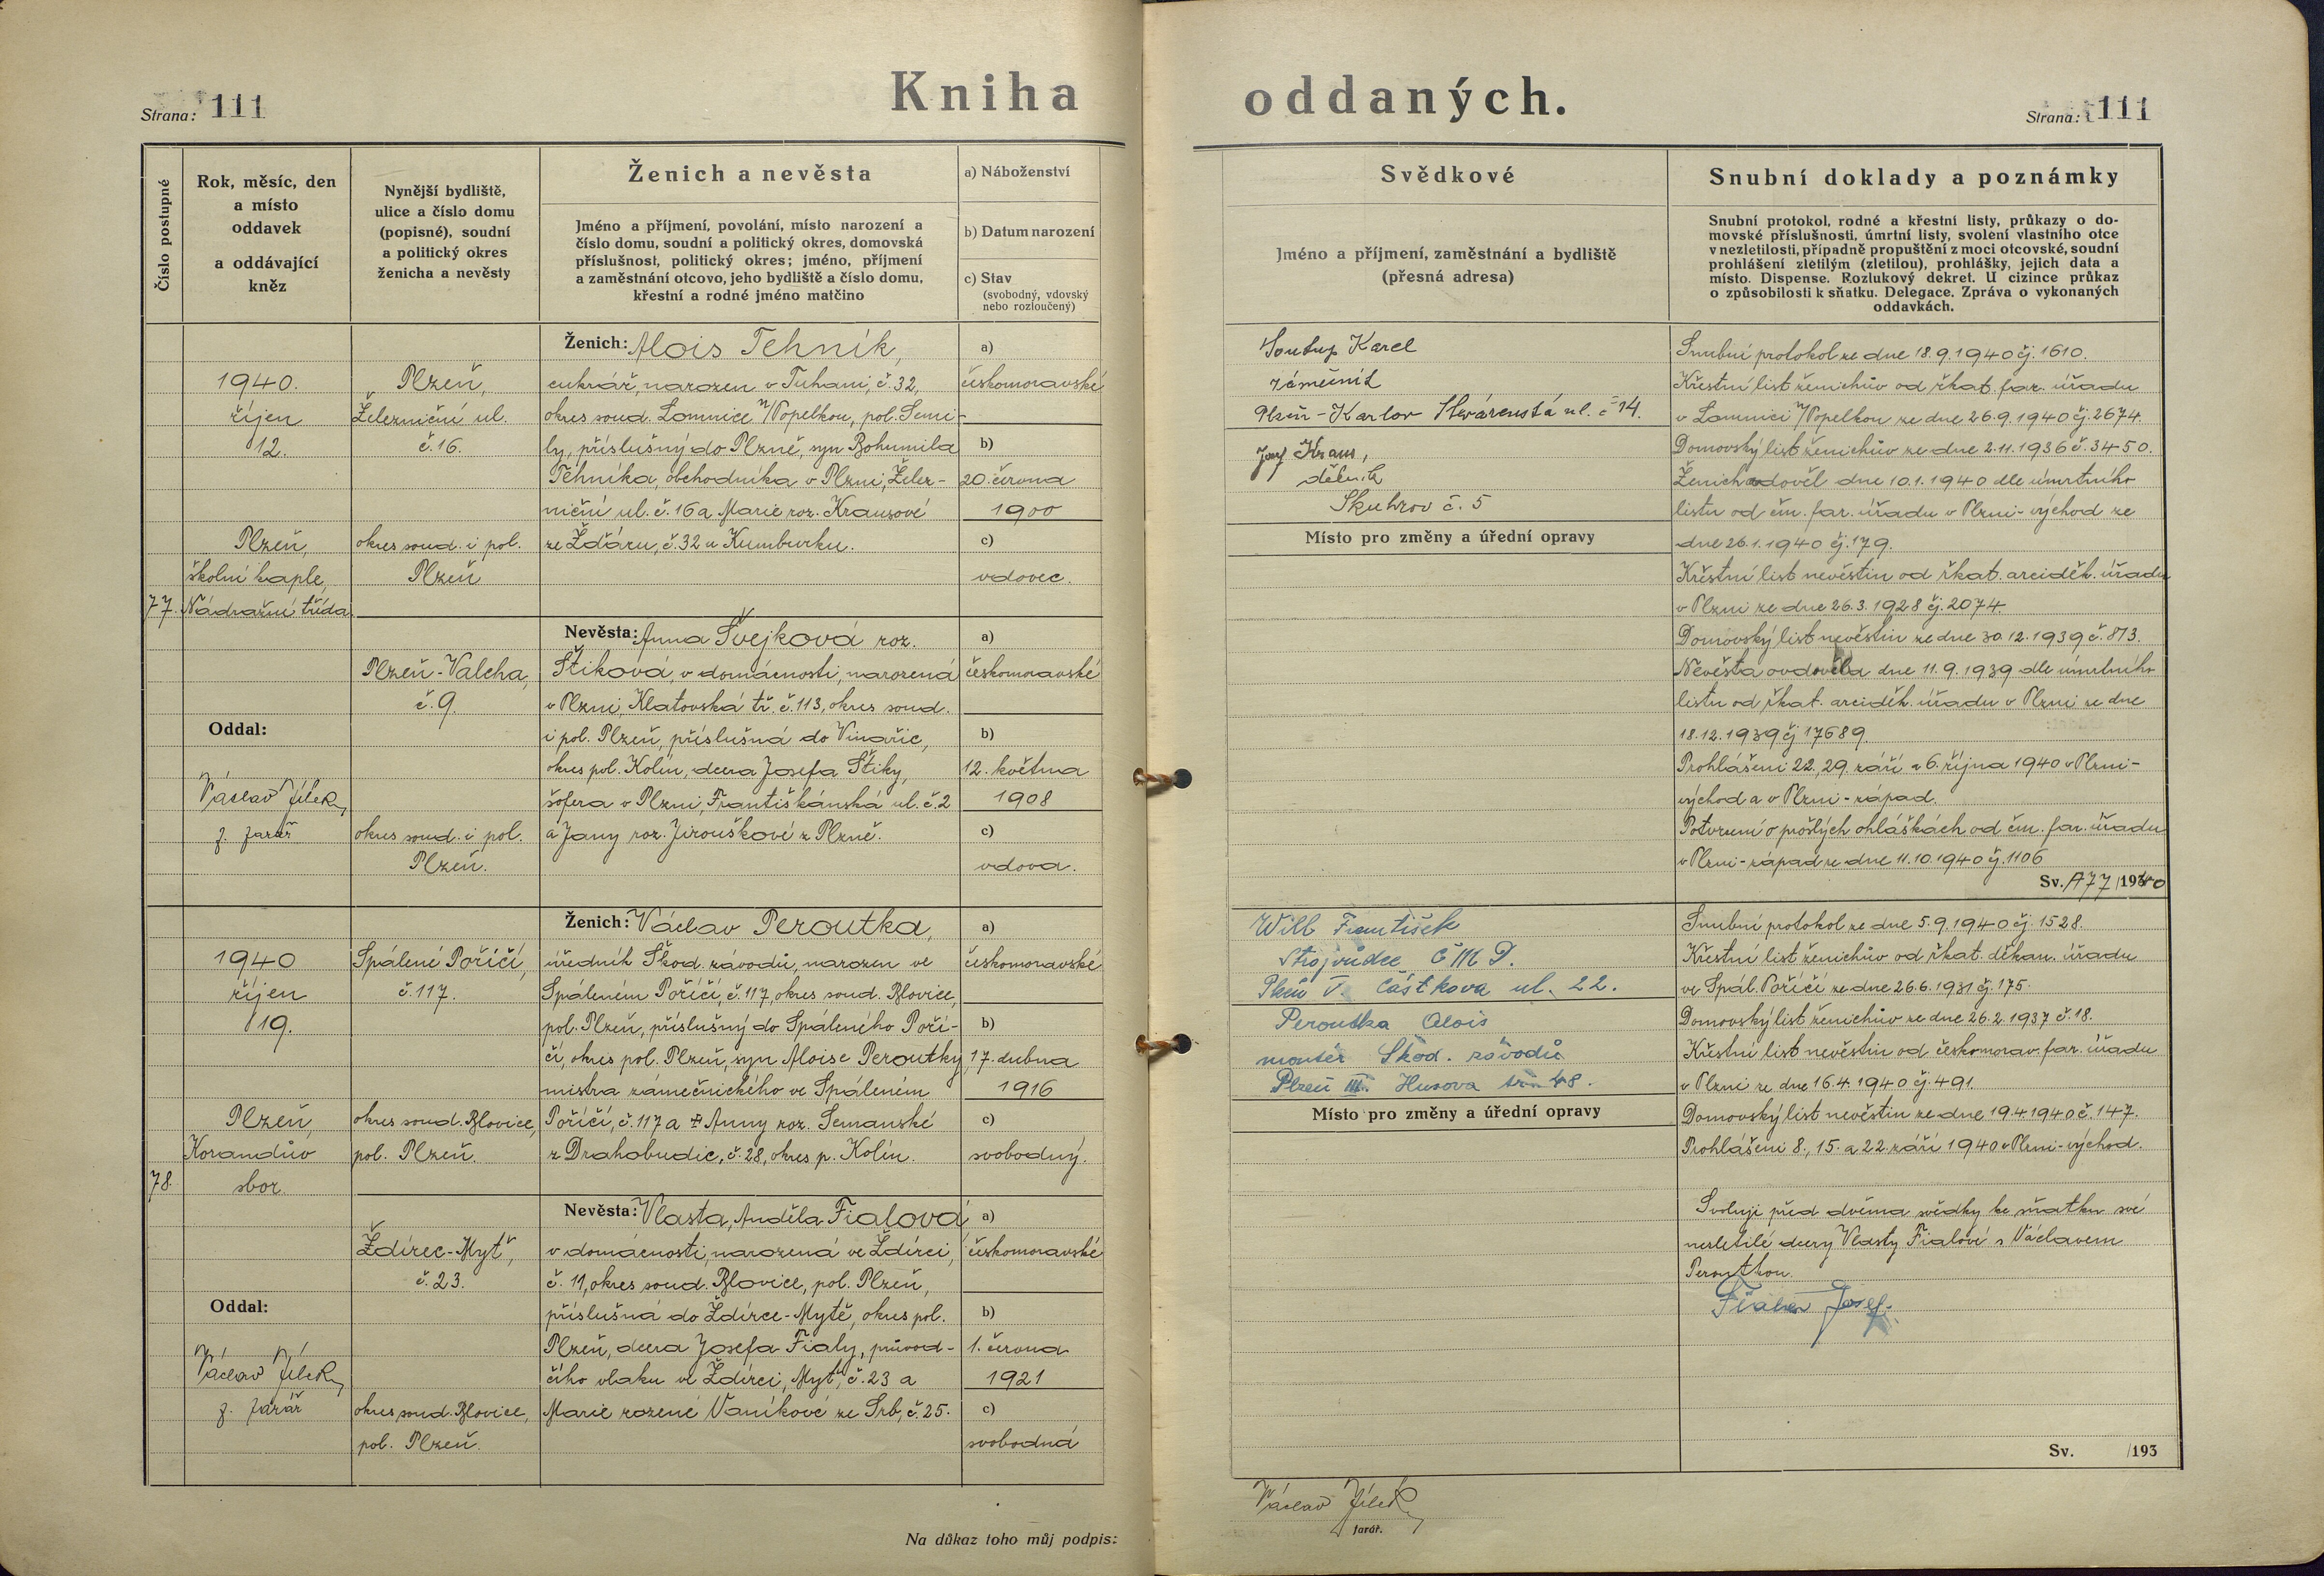 Strana: 111
Kniha oddaných.
Strana: 111
Číslo postupné
Rok, měsíc, den
a místo
oddavek
a oddávající
kněz
Nynější bydliště,
ulice a číslo domu
(popisné), soudní
a politický okres
ženicha a nevěsty
Ženich a nevěsta
Jméno a příjmení, povolání, místo narození a
číslo domu, soudní a politický okres, domovská
příslušnost, politický okres; jméno, příjmení
a zaměstnání otcovo, jeho bydliště a číslo domu,
křestní a rodné jméno matčino
a) Náboženství
b) Datum narození
c) Stav
(svobodný, vdovský
nebo rozloučený)
Svědkové
Jméno a příjmení, zaměstnání a bydliště
(přesná adresa)
Snubní doklady a poznámky
Snubní protokol, rodné a křestní listy, průkazy o do-
movské příslušnosti, úmrtní listy, svolení vlastního otce
v nezletilosti, případně propuštění z moci otcovské, soudní
prohlášení zletilým (zletilou), prohlášky, jejich data a
místo. Dispense. Rozlukový dekret. U cizince průkaz
o způsobilosti k sňatku. Delegace. Zpráva o vykonaných
oddavkách.
77.
1940.
říjen
12.
Plzeň,
školní kaple,
Nádražní třída.
Oddal:
Václav Jílek,
f. farář
Plzeň,
Železniční ul.
č. 16.
okres soud. i pol.
Plzeň
Plzeň-Valcha,
č. 9.
okres soud. i pol.
Plzeň.
Ženich: Alois Tehník,
cukrář, narozen v Tuhani, č. 32,
okres soud. Lomnice n/Popelkou, pol. Semi-
ly, příslušný do Plzně, syn Bohumila
Tehníka, obchodníka v Plzni, Želez-
niční ul. č. 16 a Marie roz. Krausové
ze Žďáru, č. 32 u Kumburku.
Nevěsta: Anna Švejková roz.
Štiková, v domácnosti, narozená
v Plzni, Klatovská tř. č. 113, okres soud.
i pol. Plzeň, příslušná do Vinařic,
okres pol. Kolín, dcera Josefa Štiky,
šofera v Plzni, Františkánská ul. č. 2
a Jany roz. Jirouškové z Plzně.
a)
českomoravské
b)
20. června
1900
c)
vdovec.
a)
českomoravské
b)
12. května
1908
c)
vdova.
Soukup Karel
zámečník
Plzeň-Karlov ul. č 14.
Josef Kraus,
dělník
Skuhrov č. 5
Místo pro změny a úřední opravy
Snubní protokol ze dne 18.9.1940 čj. 1610.
Křestní list ženichův od řkat. far. úřadu
v Lomnici n/Popelkou ze dne 26.9.1940 čj. 2674.
Domovský list ženichův ze dne 2.11.1936 č. 3450.
Ženich ovdověl dne 10.1.1940 dle úmrtního
listu od čm. far. úřadu v Plzni-východ ze
dne 26.1.1940 čj. 179.
Křestní list nevěstin od řkat. arciděk. úřadu
v Plzni ze dne 26.3.1928 čj. 2074.
Domovský list nevěstin ze dne 30.12.1939 č. 813.
Nevěsta ovdověla dne 11.9.1939 dle úmrtního
listu od řkat. arciděk. úřadu v Plzni ze dne
18.12.1939 čj 17689.
Prohlášeni 22., 29. září a 6. října 1940 v Plzni-
východ a v Plzni-západ.
Potvrzení o prošlých ohláškách od čm. far. úřadu
v Plzni-západ ze dne 11.10.1940 čj. 1106
Sv. A77/1940
78.
1940
říjen
19.
Plzeň,
Korandův
sbor.
Oddal:
Václav Jílek,
f. farář
Spálené Poříčí,
č. 117.
okres soud. Blovice,
pol. Plzeň.
Ždírec-Myť,
č. 23.
okres soud. Blovice,
pol. Plzeň.
Ženich: Václav Peroutka,
úředník Škod. závodů, narozen ve
Spáleném Poříčí, č. 117, okres soud. Blovice,
pol. Plzeň, příslušný do Spáleného Poří-
čí, okres pol. Plzeň, syn Aloise Peroutky,
mistra zámečnického ve Spáleném
Poříčí, č. 117 a Anny roz. Semanské
z Drahobudic, č. 28, okres p. Kolín.
Nevěsta: Vlasta, Anděla Fialová
v domácnosti, narozená ve Ždírci,
č. 11, okres soud. Blovice, pol. Plzeň,
příslušná do Ždírce-Mytě, okres pol.
Plzeň, dcera Josefa Fialy, průvod-
čího vlaku ve Ždírci, Myť, č. 23 a
Marie rozené Vaníkové ze Srb, č. 25.
a)
českomoravské
b)
17. dubna
1916
c)
svobodný.
a)
českomoravské
b)
1. června
1921
c)
svobodná
Willb František
Strojvůdce Č M D.
Plzeň V. Částkova ul. 22.
Peroutka Alois
montér Škod. závodů
Plzeň III. Husova 48.
Místo pro změny a úřední opravy
Snubní protokol ze dne 5.9.1940 čj. 1528.
Křestní list ženichův od řkat. děkan. úřadu
ve Spál. Poříčí ze dne 26.6.1931 čj. 175.
Domovský list ženichův ze dne 26.2.1937 č. 18.
Křestní list nevěstin od českomorav. far. úřadu
v Plzni ze dne 16.4.1940 čj. 491.
Domovský list nevěstin ze dne 19.4.1940 č. 147.
Prohlášeni 8., 15. a 22. září 1940 v Plzni-východ.
Svoluji před dvěma svědky ke sňatku své
nezletilé dcery Vlasty Fialové s Václavem
Peroutkou.
Fiala Josef.
Sv. /193
Na důkaz toho můj podpis:
Václav Jílek,
farář.